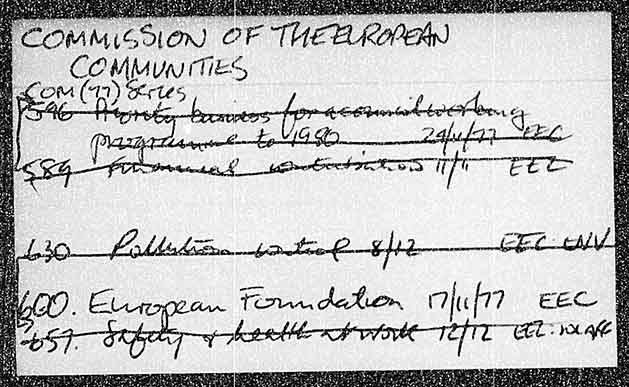 COMMISSION OF THE EUROPEAN
COMMUNITIES
COM (77) Series
596 Priority business for a communal working
programme to 1980 29/11/77 EEC
589 Financial contributions 11/11 EEC
630 Pollution control 8/12 EEC ENV
600. European Foundation 17/11/77 EEC
657. Safety & health at work 12/12 EEC: